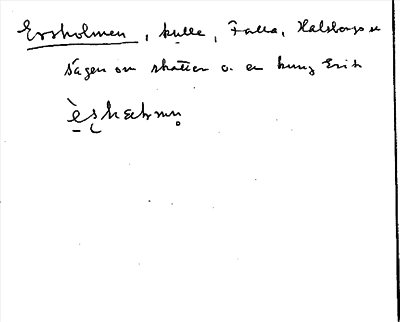 Ersholmen, kulle, Falla, Halsbergs sn
Sagen om skatten o. en kung Erik